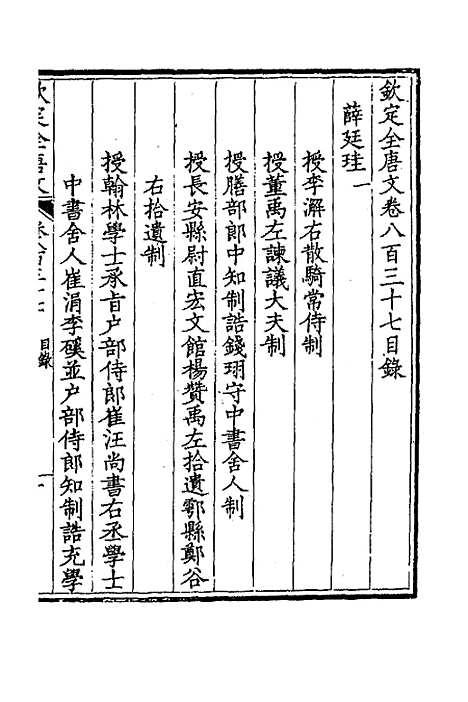 欽定全唐文卷八百三十七目錄
薛廷珪一
授李澥右散騎常侍制
授董禹左諫議大夫制
授膳部郎中知制誥錢珝守中書舍人制
授長安縣尉直宏文館楊贊禹左拾遺鄠縣鄭谷
右拾遺制
授翰林學士承旨户部侍郎崔汪尚書右丞學士
中書舍人崔涓李磎並户部侍郎知制誥充學
欽定全唐文 目錄